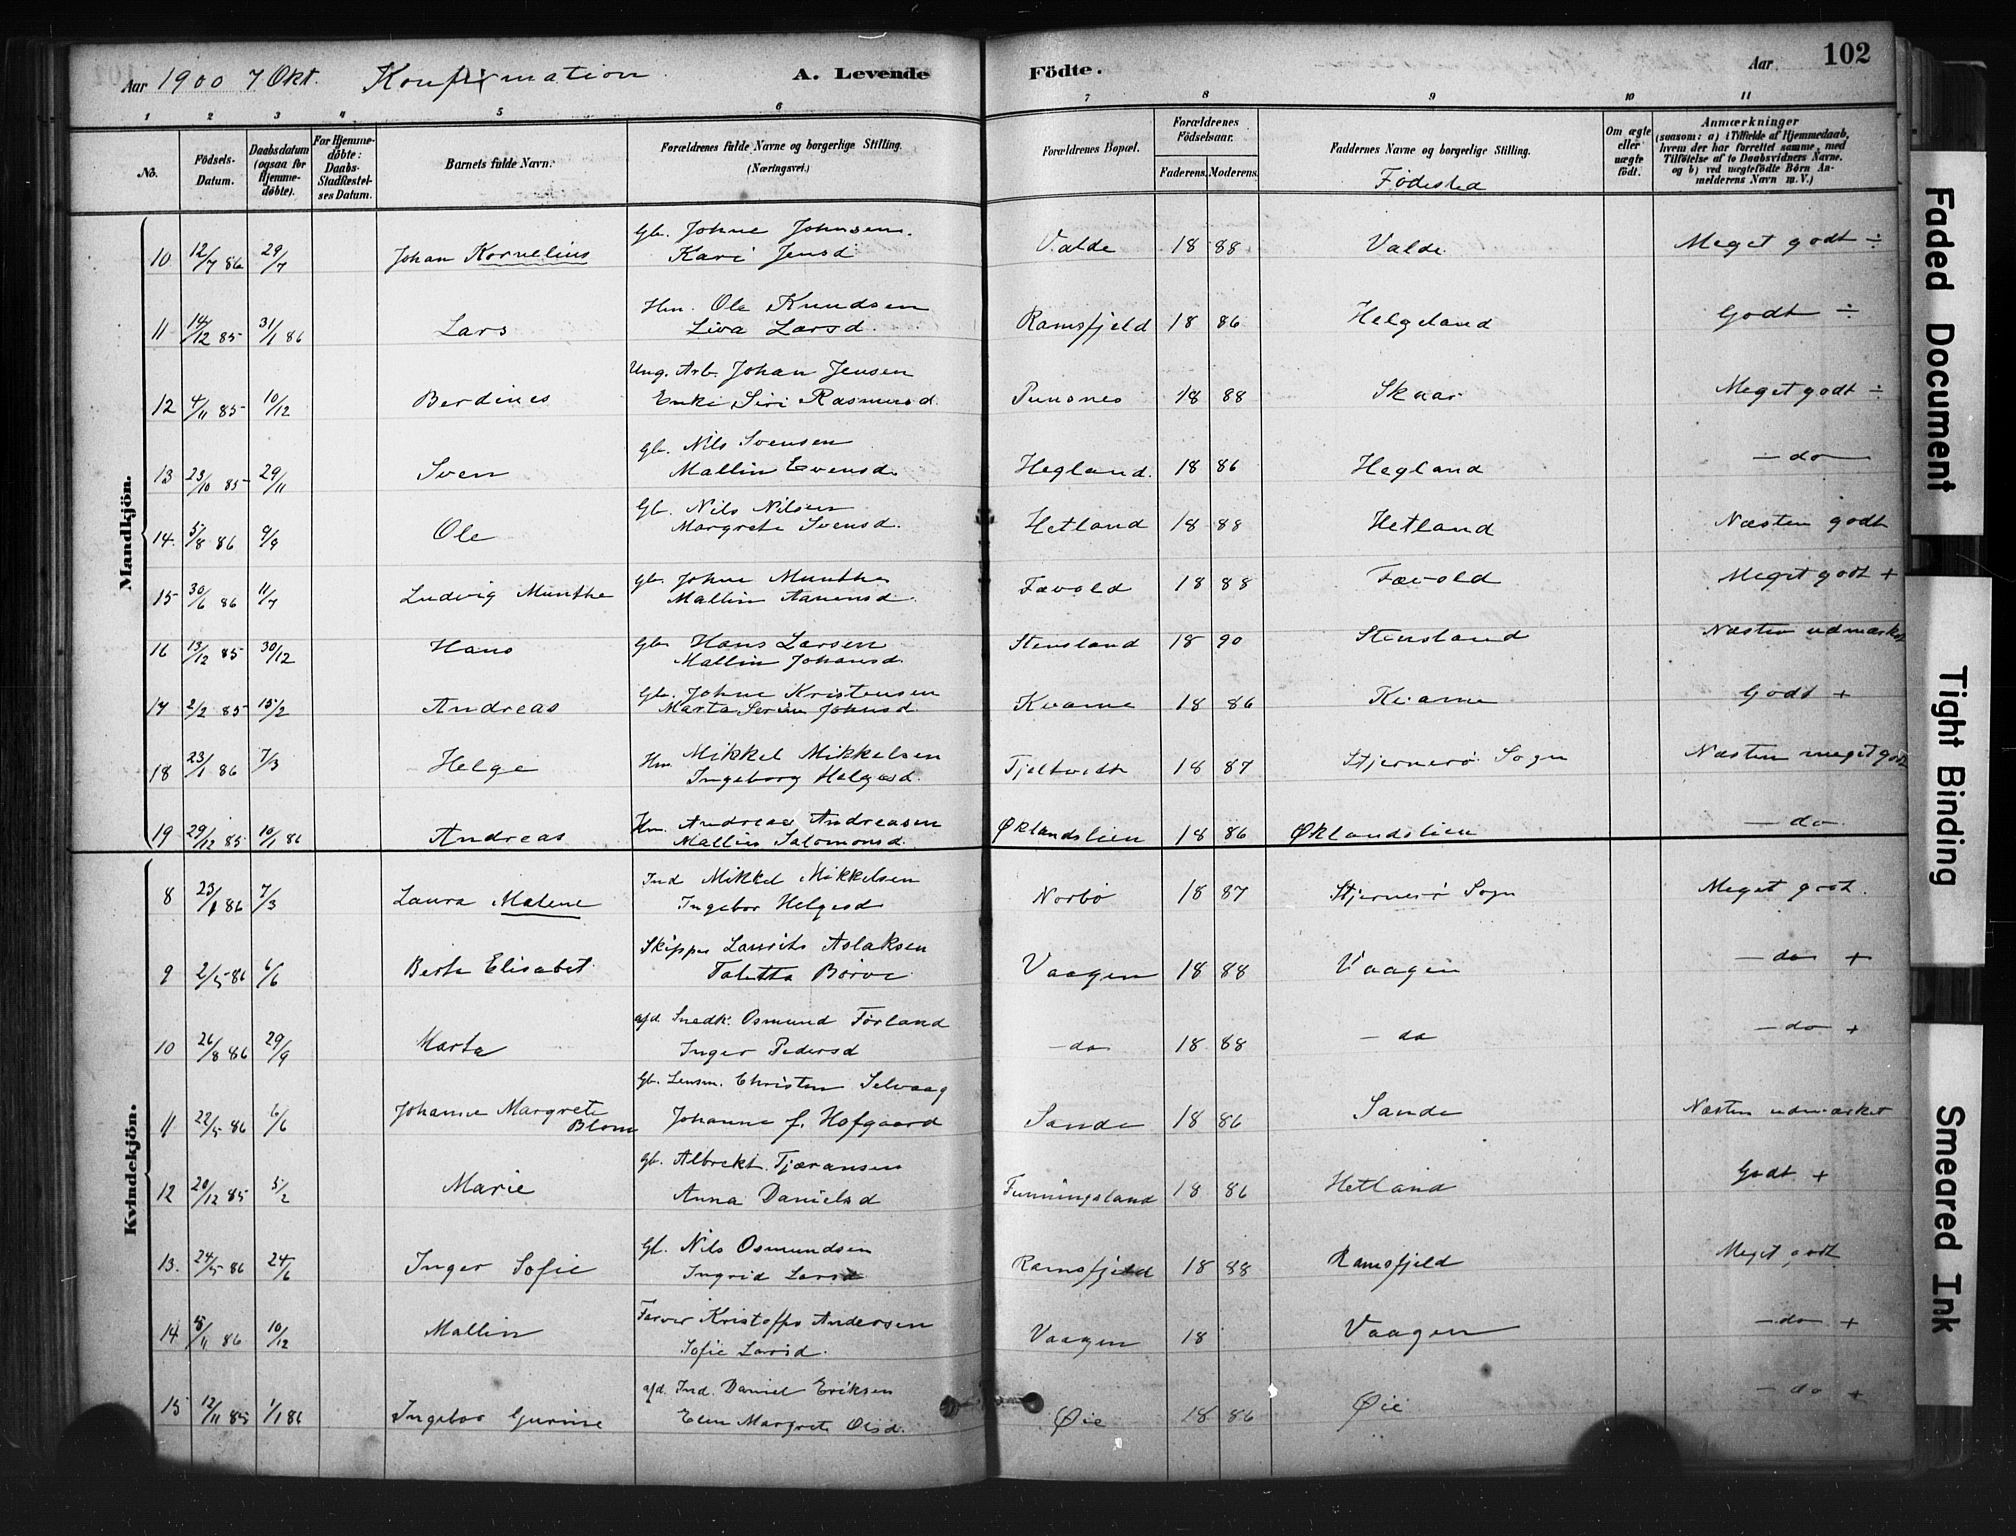 Aar 1900 7 Okt. Konfirmation A. Levende Födte. Aar 102
1 2 3 4 5 6 7 8 9 10 11
No.
Födsels-Datum.
Daabsdatum (ogsaa for Hjemmedöbte).
For Hjemmedöbte: Daabs-Stadfæstelses Datum.
Barnets fulde Navn.
Forældrenes fulde Navne og borgerlige Stilling. (Næringsvei.)
Forældrenes Bopæl.
Forældrenes Födselsaar.
Faderens. Moderens.
Faddernes Navne og borgerlige Stilling.
Fødested
Om ægte eller uægte født.
Anmærkninger
(saasom: a) i Tilfælde af Hjemmedaab,
hvem der har forrettet samme, med
Tilföielse af to Daabsvidners Navne.
og b) ved uægtefödte Börn An-
melderens Navn m. V.)
Mandkjön.
10 12/7 86 29/7 Johan Kornelius Gb. Johne Johnsen Valde 18 88 Valde Meget godt ÷
Kari Jensd
11 14/12 85 31/1 86 Lars Hm. Ole Knudsen Ramsfjeld 18 86 Helgeland Godt ÷
Liva Larsd.
12 4/11 85 10/12 Berdines Ung. Arb. Johan Jensen 18 88 Skaar Meget godt ÷
Enke Siri Rasmusd.
13 23/10 85 29/11 Sven Gb. Nils Svensen Hegland. 18 86 Hegland - do -
Mallin Evensd.
14. 5/8 86 9/9 Ole Gb. Nils Nilsen Hetland 18 88 Hetland Næsten godt
Margrete Svensd.
15 30/6 86 11/7 Ludvig Munthe Gb. Johne Munthe Fævold 18 88 Fævold Meget godt +
Mallin Aanensd.
16 13/12 85 30/12 Hans Gb. Hans Larsen Stensland 18 90 Stensland Næsten udmærket
Mallin Johansd.
17 2/2 85 15/2 Andreas Gb. Johne Kristensen Kvame 18 86 Kvame Godt +
Marta Serine Johnsd.
18 23/1 86 7/3 Helge Hm. Mikkel Mikkelsen Tjeltvedt 18 87 Stjernerø Sogn Næsten meget godt
Ingeborg Helgesd.
19 29/12 85 10/1 86 Andreas Hm. Andreas Andreasen Øklandslien 18 86 Øklandslien - do.
Mallin Salomonsd.
Kvindekjön.
8 23/1 86 7/3 Laura Malene Ind Mikkel Mikkelsen Norbø 18 87 Stjernerø Sogn Meget godt.
Ingebor Helgesd
9 2/5 86 6/6 Berte Elisabet Skipper Laurits Aslaksen Vaagen 18 88 Vaagen - do +
Taletta Børve
10 26/8 86 29/9 Marta afd. Snedk. Osmund Førland - do 18 88 - do - do +
Inger Pedersd
11 22/5 86 6/6 Johanne Margrete Blom Gb. Lensm. Christen Selvaag Sande 18 86 Sande Næsten udmærket
Johanne f. Hofgaard
12 20/12 85 5/2 Marie Gb. Albrekt Tjæransen Funningsland 18 86 Hetland Godt +
Anna Danielsd
13. 24/5 86 24/6 Inger Sofie Gb. Nils Osmundsen Ramsfjeld 18 88 Ramsfjeld Meget godt
Ingrid Larsd
14 5/11 86 10/12 Mallin Farver Kristoffer Andersen Vaagen 18 Vaagen - do +
Sofie Larsd.
15 12/11 85 1/1 86 Ingebor Gurine afd. Ind. Daniel Eriksen Øie 18 86 Øie - do +
Elen Margrete Olsd.
Faded Document
Tight Binding
Smeared Ink